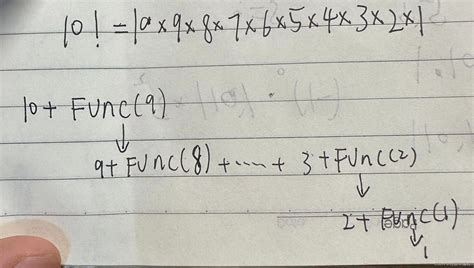 10! = 10×9×8×7×6×5×4×3×2×1
10+ Func(9)
↓
9+ Func(8) +……+ 3+Func(2)
↓
2+ Func(1)
↓
1